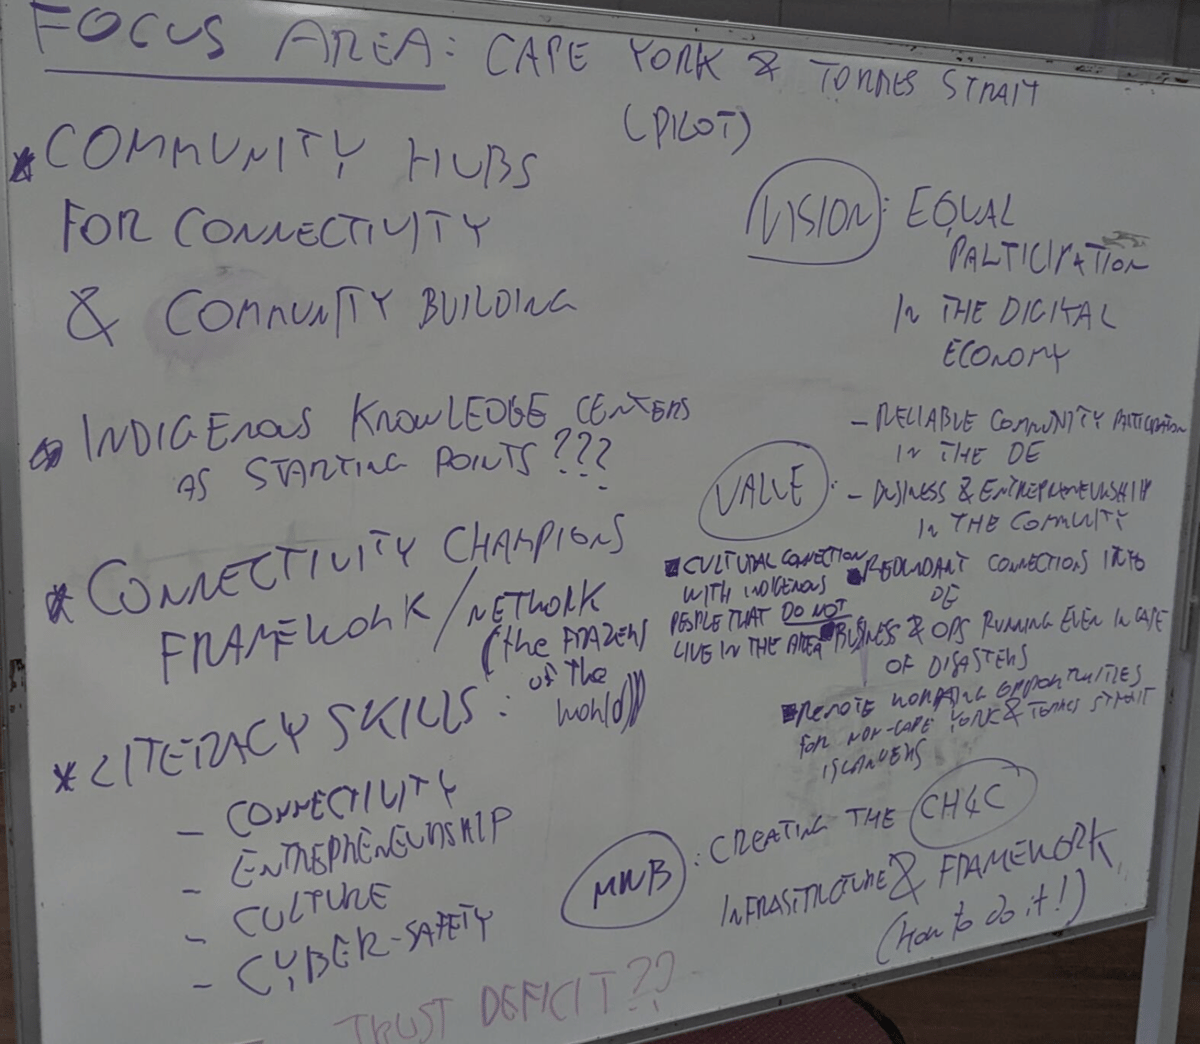 FOCUS AREA: CAPE YORK & TORRES STRAIT
(PILOT)
* COMMUNITY HUBS
FOR CONNECTIVITY
& COMMUNITY BUILDING
INDIGENOUS KNOWLEDGE CENTERS
AS STARTING POINTS???
* CONNECTIVITY CHAMPIONS
FRAMEWORK / NETWORK
(the FRAZERS
of the
world)
* LITERACY SKILLS:
- CONNECTIVITY
- ENTREPRENEURSHIP
- CULTURE
- CYBER-SAFETY
TRUST DEFICIT??
VISION: EQUAL
PARTICIPATION
IN THE DIGITAL
ECONOMY
VALUE:
- RELIABLE COMMUNITY PARTICIPATION
IN THE DE
- BUSINESS & ENTREPRENEURSHIP
IN THE COMMUITY
CULTURAL CONECTION
WITH INDIGENOUS
PEOPLE THAT DO NOT
LIVE IN THE AREA
REDUNDANT CONNECTIONS INTO
DE
BUSINESS & OPS RUNNING EVEN IN CAPE
OF DISASTERS
REMOTE WORKING OPPORTUNITIES
FOR NON-CAPE YORK & TORRES STRAIT
ISLANDERS
MWB: CREATING THE CH4C
INFRASTRUCTURE & FRAMEWORK
(How to do it!)